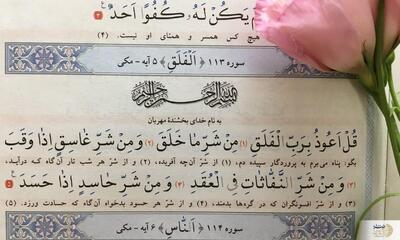 يَكُنْ لَهُ و كُفُوًا اَحَدٌ ﴿۴﴾
هیچ کس همسر و همتای او نیست. (۴)
سوره ۱۱۳ [اَلْفَلَق] ۵ آیه - مکی
بسم الله الرحمن الرحیم
به نام خدای بخشندهٔ مهربان
قُلْ اَعوذُ بِرَبِّ الْفَلَقِ (۱) مِنْ شَرِّ ما خَلَقَ (۲) وَ مِنْ شَرِّ غاسِقٍ اِذا وَقَبَ
بگو: پناه می‌برم به پروردگار سپیده دم، (۱) از شرّ آن‌چه آفریده، (۲) و از شرّ هر شب تار آن‌گاه که درآید،
(۳) وَ مِنْ شَرِّ النَّفّاثاتِ فِی الْعُقَدِ (۴) وَ مِنْ شَرِّ حاسِدٍ اِذا حَسَدَ ﴿۵﴾
(۳) و از شرّ افسونگران که در گره‌ها بدمند، (۴) و از شرّ هر حسود بدخواه آن‌گاه که حسادت ورزد. (۵)
سوره ۱۱۴ [اَلنّاس] ۶ آیه - مکی